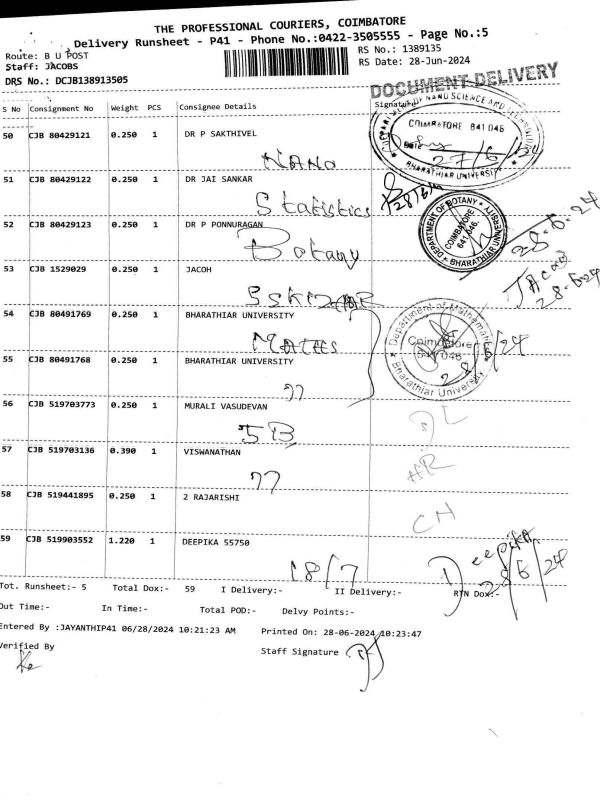 THE PROFESSIONAL COURIERS, COIMBATORE
Delivery Runsheet - P41 - Phone No.:0422-3505555 - Page No.:5
Route: B U POST
RS No.: 1389135
Staff: JACOBS
RS Date: 28-Jun-2024
DRS No.: DCJB138913505
DOCUMENT DELIVERY
S No Consignment No Weight PCS Consignee Details Signature
DEPARTMENT OF NANO SCIENCE AND TECHNOLOGY
COIMBATORE 641 046
Date
27/6/24
BHARATHIAR UNIVERSITY
50 CJB 80429121 0.250 1 DR P SAKTHIVEL
NANO
51 CJB 80429122 0.250 1 DR JAI SANKAR
Statistics
52 CJB 80429123 0.250 1 DR P PONNURAGAN
Botany
DEPARTMENT OF BOTANY
COIMBATORE
641 046.
BHARATHIAR UNIVERSITY
28-6-24
53 CJB 1529029 0.250 1 JACOH
Jacob
28-6-24
54 CJB 80491769 0.250 1 BHARATHIAR UNIVERSITY
MATHS
Department of Mathematics
Coimbatore
641 046
Bharathiar University
28/6/24
55 CJB 80491768 0.250 1 BHARATHIAR UNIVERSITY
77
56 CJB 519703773 0.250 1 MURALI VASUDEVAN
5B
57 CJB 519703136 0.390 1 VISWANATHAN
77
HR
58 CJB 519441895 0.250 1 2 RAJARISHI
CH
59 CJB 519903552 1.220 1 DEEPIKA 55750
18/7
Deepika
28/6/24
Tot. Runsheet:- 5 Total Dox:- 59 I Delivery:- II Delivery:- RTN Dox:-
Out Time:- In Time:- Total POD:- Delvy Points:-
Entered By :JAYANTHIP41 06/28/2024 10:21:23 AM Printed On: 28-06-2024 10:23:47
Verified By
Staff Signature